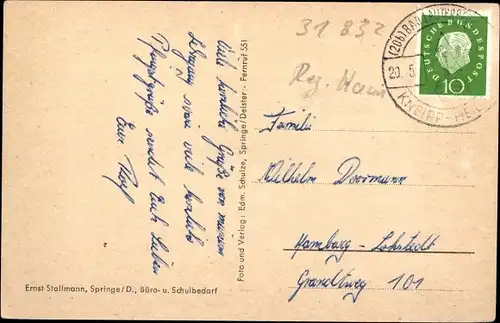 31 832
(20b) BAD
20. 5.
KNEIPP-HE
DEUTSCHE BUNDESPOST
10
Reg. Hann
Viel herzliche Grüße von meinem
sowie viele herzliche
Pfingstgrüße sendet Euch Lieben
Euer
Foto und Verlag: Edm. Schulze, Springe/Deister · Fernruf 551
Familie
Wilhelm Doormann
Hamburg-Lohstedt
Grandweg 101
Ernst Stallmann, Springe/D., Büro- u. Schulbedarf